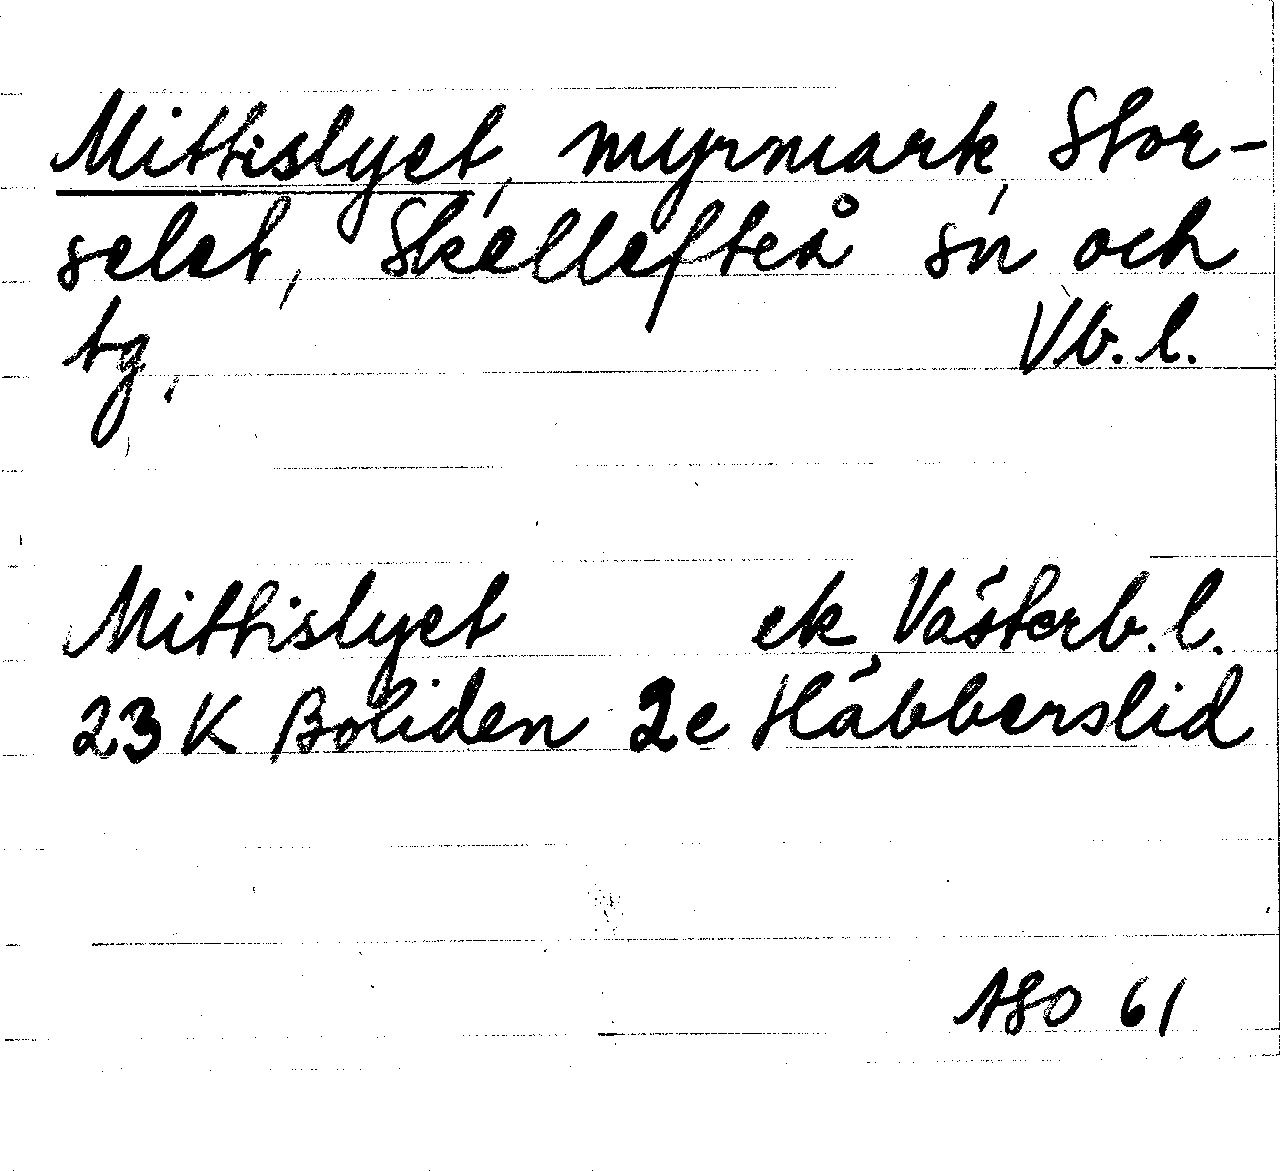 Mittislyet, myrmark, Stor-
selet, Skellefteå sn och
tg, Vb. l.
Mittislyet ek Västerb. l.
23 K Boliden 2e Häbberslid
ASO 61